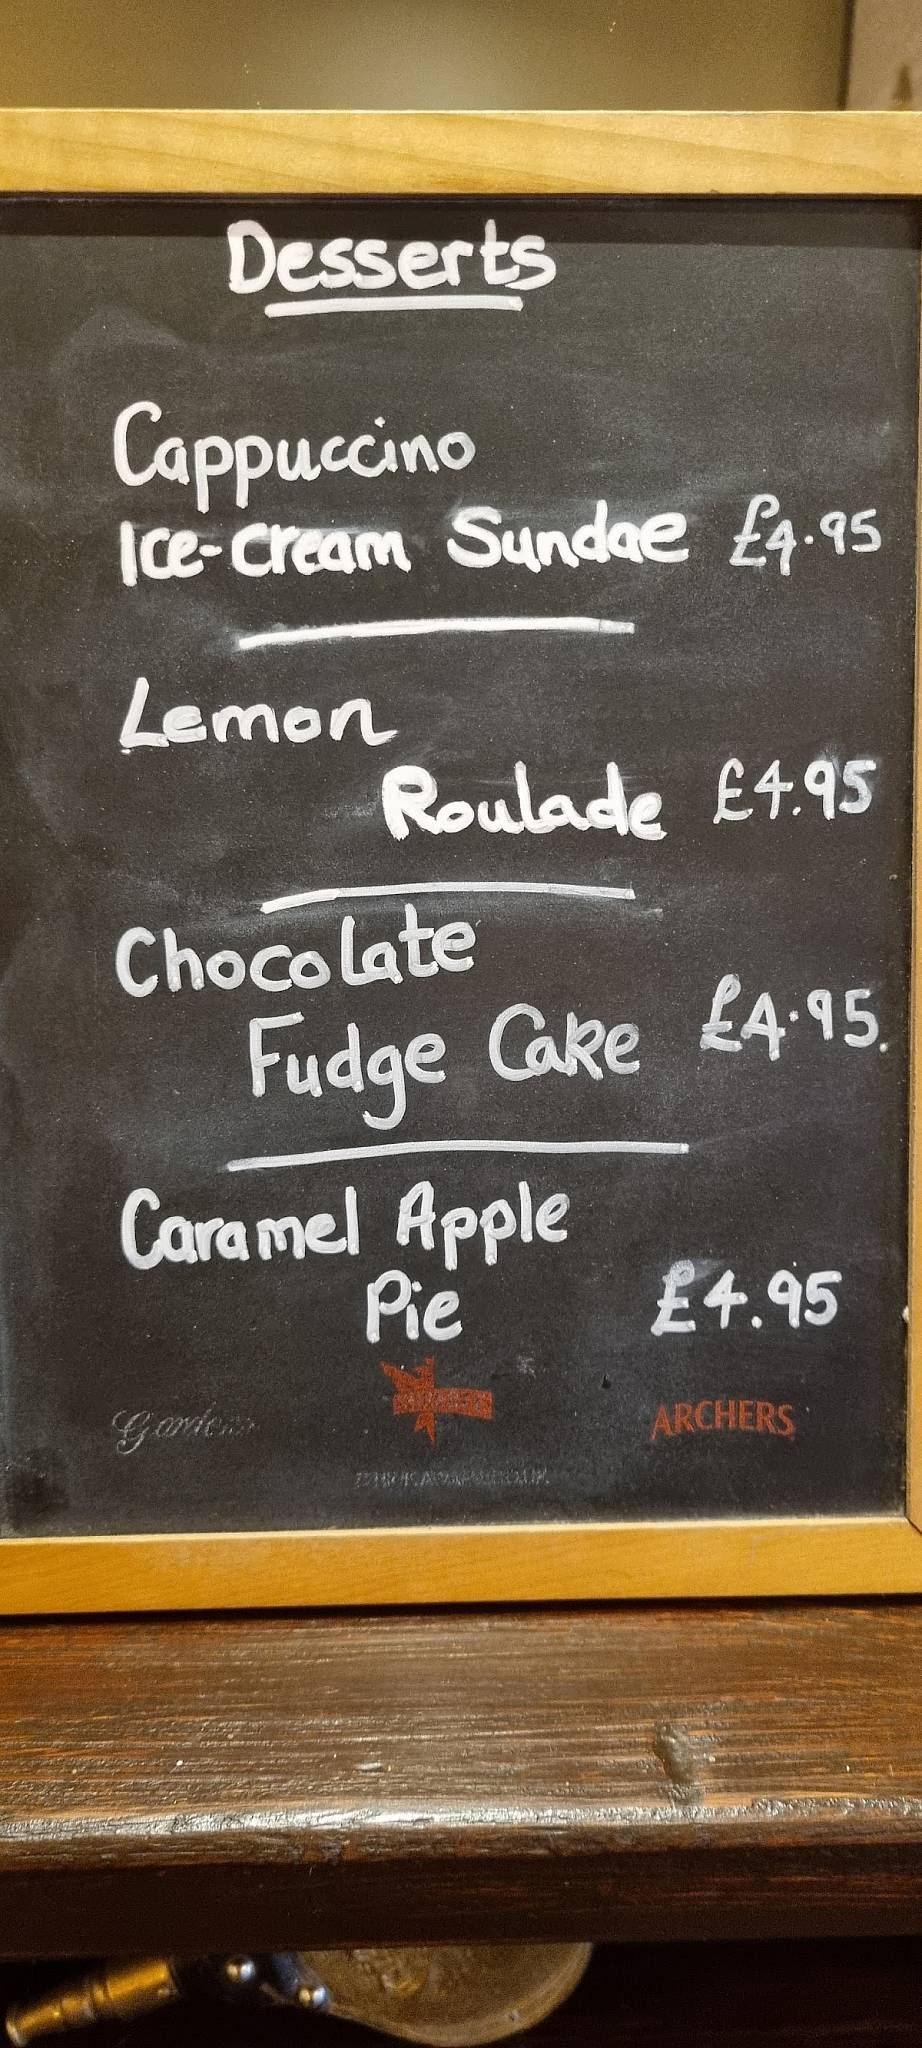 Desserts
Cappuccino
Ice-Cream Sundae £4.95
Lemon
Roulade £4.95
Chocolate
Fudge Cake £4.95.
Caramel Apple
Pie £4.95
ARCHERS